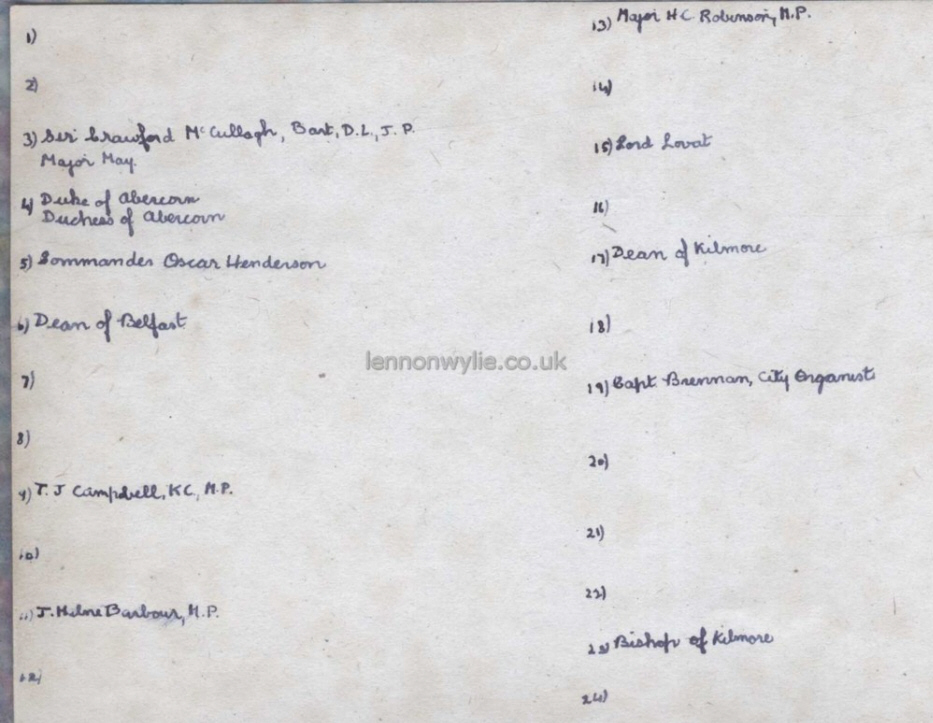 1)
2)
3) Sir Crawford McCullagh, Bart, D.L., J.P.
Major May.
4) Duke of Abercorn
Duchess of Abercorn
5) Commander Oscar Henderson
6) Dean of Belfast
7)
8)
9) T. J Campbell, KC, M.P.
10)
11) J. Milne Barbour, M.P.
12)
13) Major H C Robinson, M.P.
14)
15) Lord Lovat
16)
17) Dean of Kilmore
18)
19) Capt Brennan, City Organist
20)
21)
22)
23) Bishop of Kilmore
24)
lennonwylie.co.uk